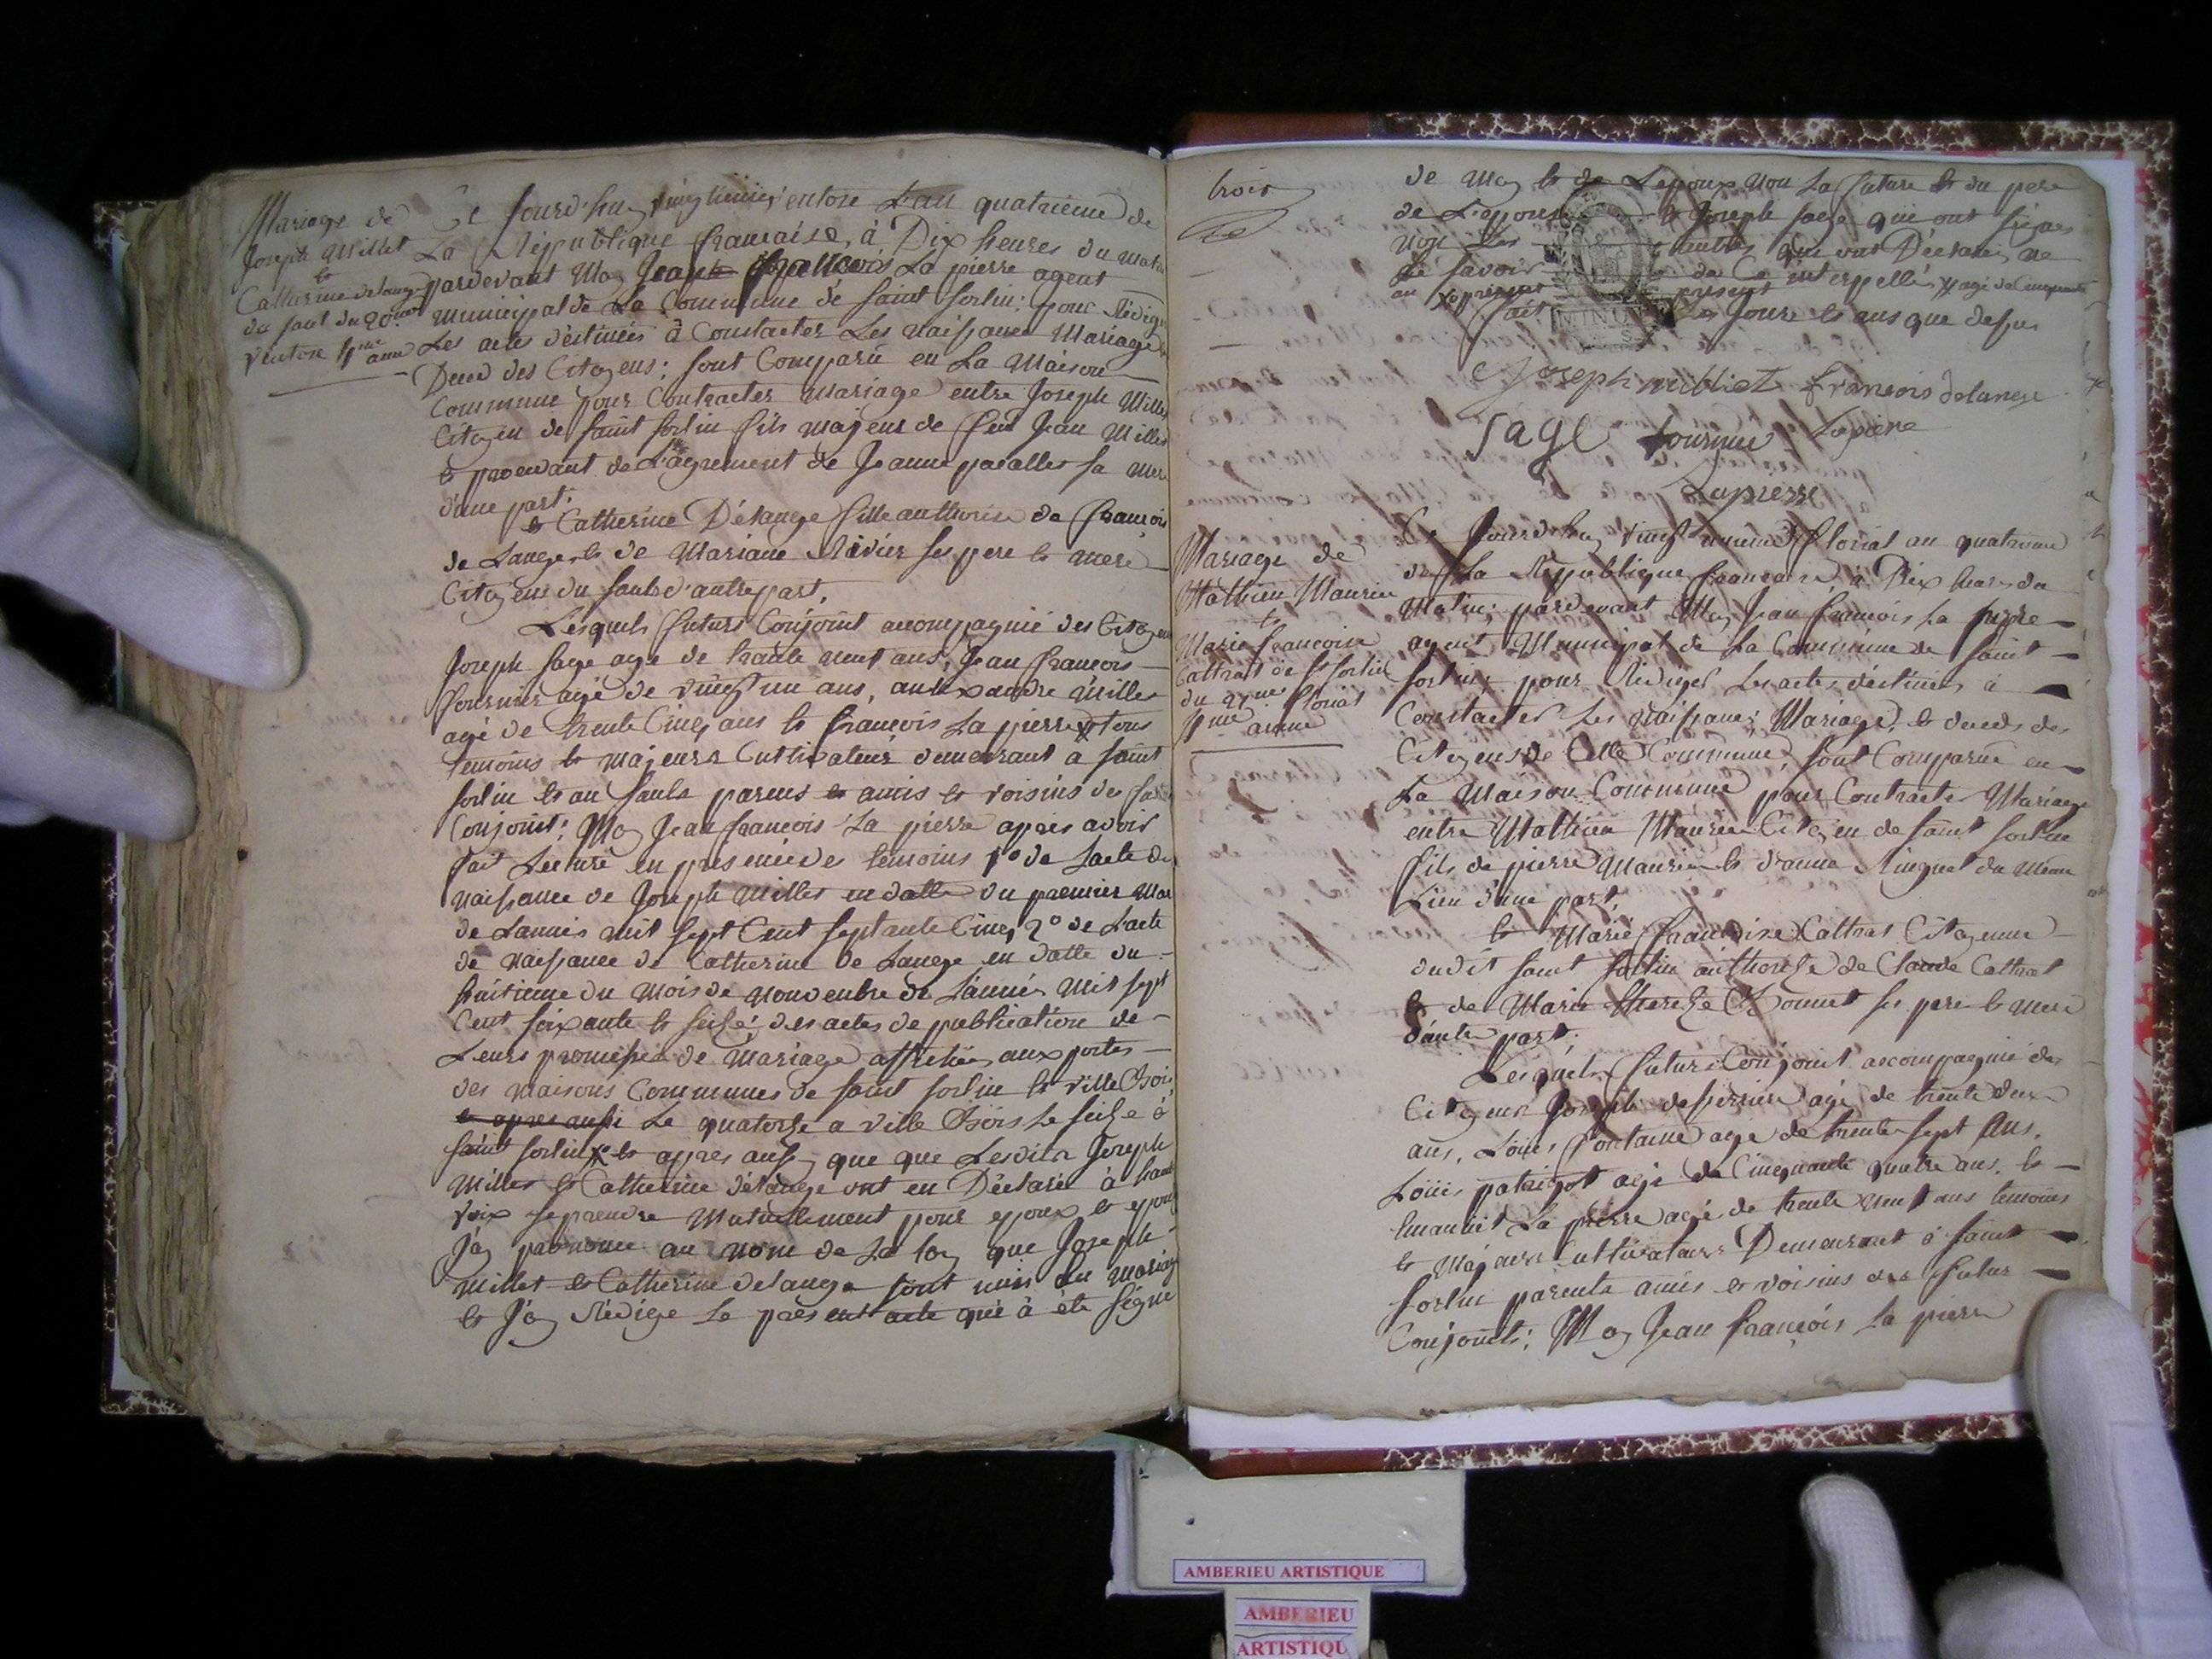 Mariage de
Joseph Millet
et
Catherine delange
du saut du 20.me
ventose 4me anné
Ce Jourd'huy vingtieme ventose L'an quatrieme de
La Republique francaise, à Dix heures du matin
pardevant Moy Jean francois La pierre agent
municipal de La Commune de saint sorlin; pour Rédiger
Les actes déstinées à Constacter Les naissances Mariages
Deces des Citoyens; sont Comparu en La Maison
Commune pour Contracter Mariage entre Joseph Millet
Citoyen de saint sorlin fils majeur de feu Jean Millet
et procedant de L'agrement de Jeanne sa mere
d'une part.
et Catherine Délange fille authorisé de francois
de Lange et de Mariane Rivier ses pere et mere
Citoyens du sault d'autre part,
Lesquels futurs Conjoint accompagnié des Citoyens
Joseph sage agé de trante neuf ans, Jean francois
fournier agé de vingt un ans, anlexandre Millet
agé de trente Cinq ans et francois La pierre tous
temoins et majeurs Cultivateurs demeurant a saint
sorlin et au sault parens et amis et voisins des futurs
Conjoint; Moy Jean francois La pierre après avoir
fait Lecture en présence des temoins 1º de Lacte de
naissance de Joseph Millet en datte du premier Mai
de Lannée mil sept Cent septante Cinq 2º de Lacte
de naissance de Catherine de Lange en datte du
huitieme du mois de novembre de L'année mil sept
Cent soixante et seise; des actes de publication de
Leurs promesses de mariage affichées aux portes
des maisons Communes de saint sorlin et ville Bois
et apres aussi Le quatorze a ville Bois Le seize à
saint sorlin et apres aussy que que Lesdits Joseph
Millet et Catherine délange ont en Déclaré à haute
voix se prendre mutuellement pour epoux et epouse
J'ay prononcé au nom de La loy que Joseph
Millet et Catherine delange sont unis en mariage
et J'ay Rédigé Le présent acte qui à été signé
trois
de Moy et de L'epoux non La future et du pere
de L'epouse et Joseph sage qui ont signés
non Les autres qui ont Déclarés ne
Le savoir de Ce interpellés agé de Cinquante
au present
fait Les Jours et ans que dessus
Joseph milliet francois delange
Sage fournier Lapierre
Lapierre
Mariage de
Mathieu Maurin
et
Marie francoise
Cattrat de st sorlin
du 21me floréal
4me année
Ce Jourd'huy vingt unieme floréal an quatrieme
de La Republique francaise à Dix heures du
Matin; pardevant Moy Jean francois La pierre
agent Municipal de La Commune de saint
sorlin; pour Rédiger Les actes déstinées à
Constacter Les naissances, Mariage, et deceds des
Citoyens de Cette Commune, sont Comparu en
La Maison Commune pour Contracter Mariage
entre Matthieu Maurin Citoyen de saint sorlin
fils de pierre Maurin et d'anne Ringuet du Même
Lieu d'une part;
et Marie francoise Cattrat Citoyenne
dudit saint sorlin authorisé de Claude Cattrat
et de Marie therese Bonnet ses pere et mere
d'autre part;
Lesquels futurs Conjoint accompagnié des
Citoyens Joseph desperrier agé de trente deux
ans, Louis fontaine agé de trente sept Ans,
Loüis patrigot agé de Cinquante quatre ans, et
Emanuel La pierre agé de trente neuf ans temoins
et Majeurs Cultivateurs Demeurant à saint
sorlin parents amis et voisins des futur
Conjoints; Moy Jean francois La pierre
AMBERIEU ARTISTIQUE
AMBERIEU
ARTISTIQU